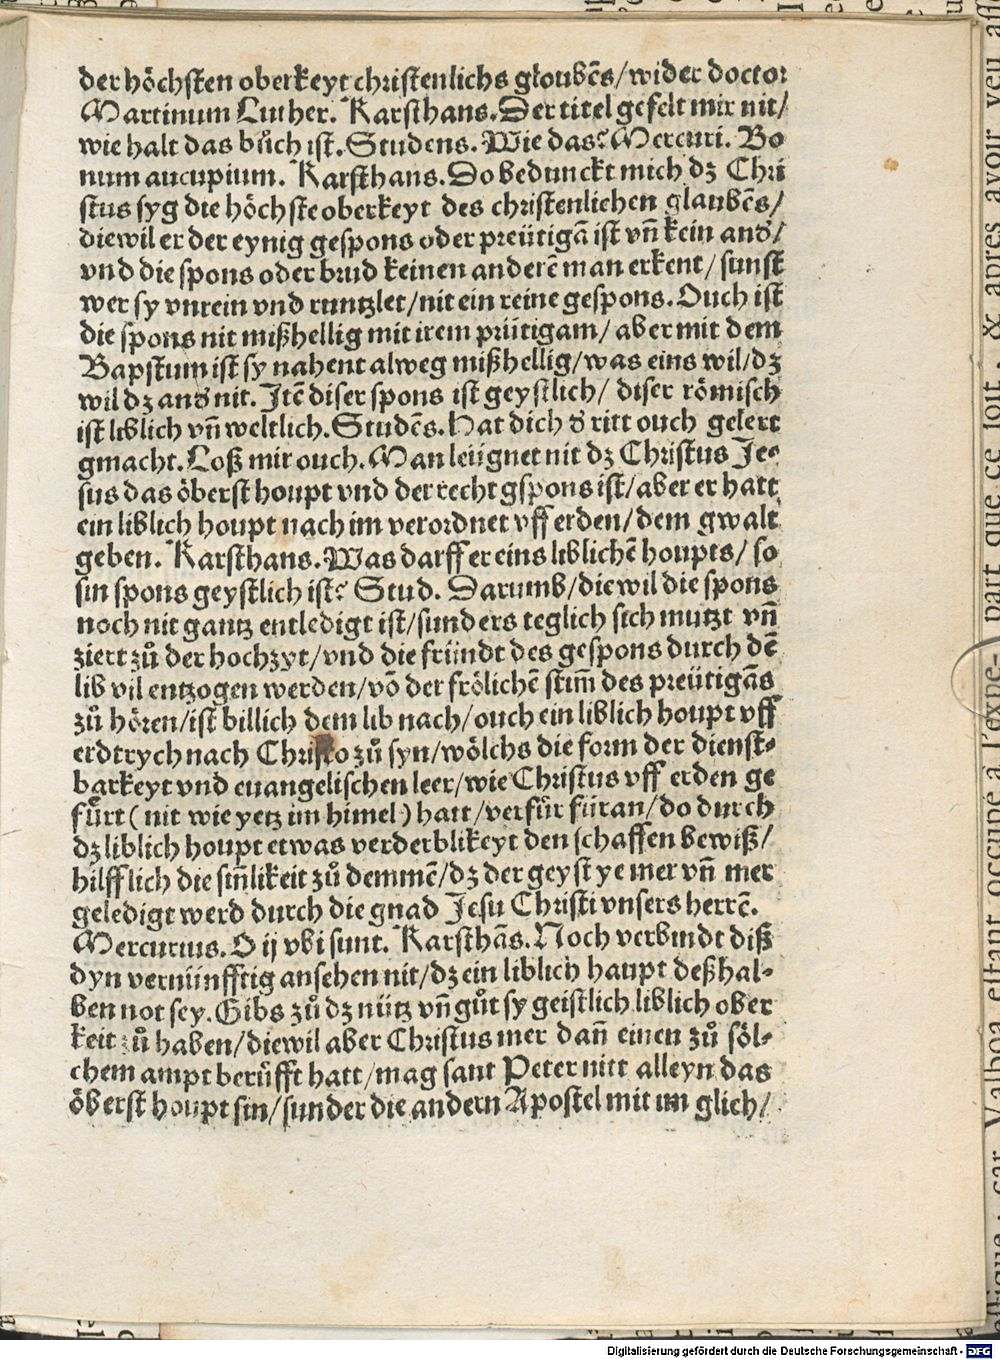 der höchsten oberkeyt christenlichs gloubēs/wider doctor
Martinum Luther. Karsthans. Der titel gefelt mir nit/
wie halt das bůch ist. Studens. Wie das? Mercuri. Bo
num aucupium. Karsthans. Do bedunckt mich dz Chri
stus syg die höchste oberkeyt des christenlichen glaubēs/
diewil er der eynig gespons oder preütigā ist vñ kein and̄/
vnd die spons oder brud keinen anderē man erkent/sunst
wer sy vnrein vnd runtzlet/nit ein reine gespons. Ouch ist
die spons nit mißhellig mit irem prütigam/ aber mit dem
Bapstum ist sy nahent alweg mißhellig/was eins wil/dz
wil dz and̄s nit. Itē diser spons ist geystlich/ diser römisch
ist liblich vñ weltlich. Studēs. Hat dich d̄ ritt ouch gelert
gmacht. Loß mir ouch. Man leügnet nit dz Christus Je-
sus das öberst houpt vnd der recht gspons ist/aber er hatt
ein liblich houpt nach im verordnet vff erden/dem gwalt
geben. Karsthans. Was darff er eins liblichē houpts/ so
sin spons geystlich ist? Stud. Darumb/diewil die spons
noch nit gantz entledigt ist/sunders teglich sich mutzt vñ
ziert zů der hochzyt/vnd die fründt des gespons durch dē
lib vil entzogen werden/vō der frölichē stim̄ des preütigās
zů hören/ist billich dem lib nach/ouch ein liblich houpt vff
erdtrych nach Christo zů syn/wölchs die form der dienst-
barkeyt vnd euangelischen leer/wie Christus vff erden ge
fůrt (nit wie yetz im himel) hatt/verfůr füran/do durch
dz liblich houpt etwas verderblikeyt den schaffen bewiß/
hilfflich die sin̄likeit zů demmē/dz der geyst ye mer vñ mer
geledigt werd durch die gnad Jesu Christi vnsers herrē.
Mercurius. O ij vbi sunt. Karsthās. Noch verbindt diß
dyn vernünfftig ansehen nit/dz ein liblich haupt deßhal-
ben not sey. Gibs zů dz nütz vñ gůt sy geistlich liblich ober
keit zů haben/diewil aber Christus mer dañ einen zů söl-
chem ampt berůfft hatt/mag sant Peter nitt alleyn das
öberst houpt sin/sunder die andern Apostel mit im glich/
Digitalisierung gefördert durch die Deutsche Forschungsgemeinschaft - DFG